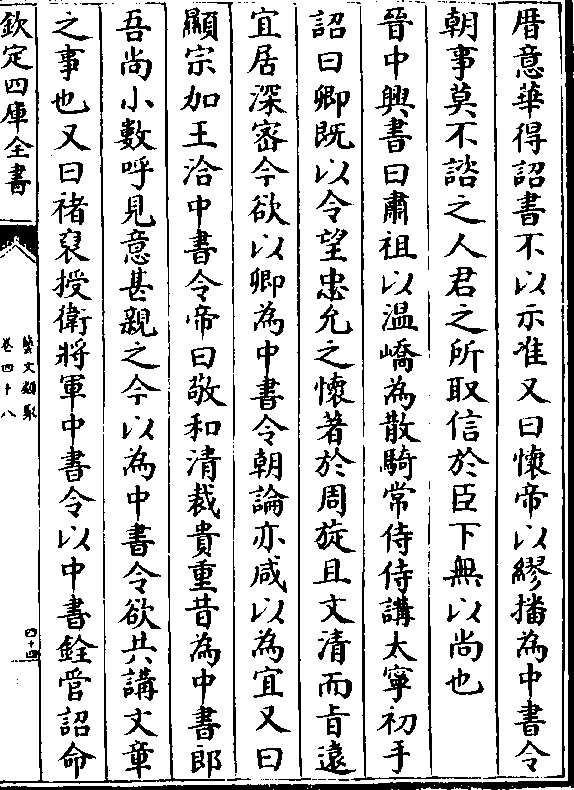 厝意華得詔書不以示准又曰懷帝以繆播為中書令
朝事莫不諮之人君之所取信於臣下無以尚也
晉中興書曰肅祖以温嶠為散騎常侍侍講太寧初手
詔曰卿既以令望忠允之懷著於周旋且文清而㫖遠
宜居深宻今欲以卿為中書令朝論亦咸以為宜又曰
顯宗加王洽中書令帝曰敬和清裁貴重昔為中書郎
吾尚小數呼見意甚親之今以為中書令欲共講文章
之事也又曰褚裒授衛將軍中書令以中書銓管詔命
欽定四庫全書
藝文類聚
卷四十八
四十四